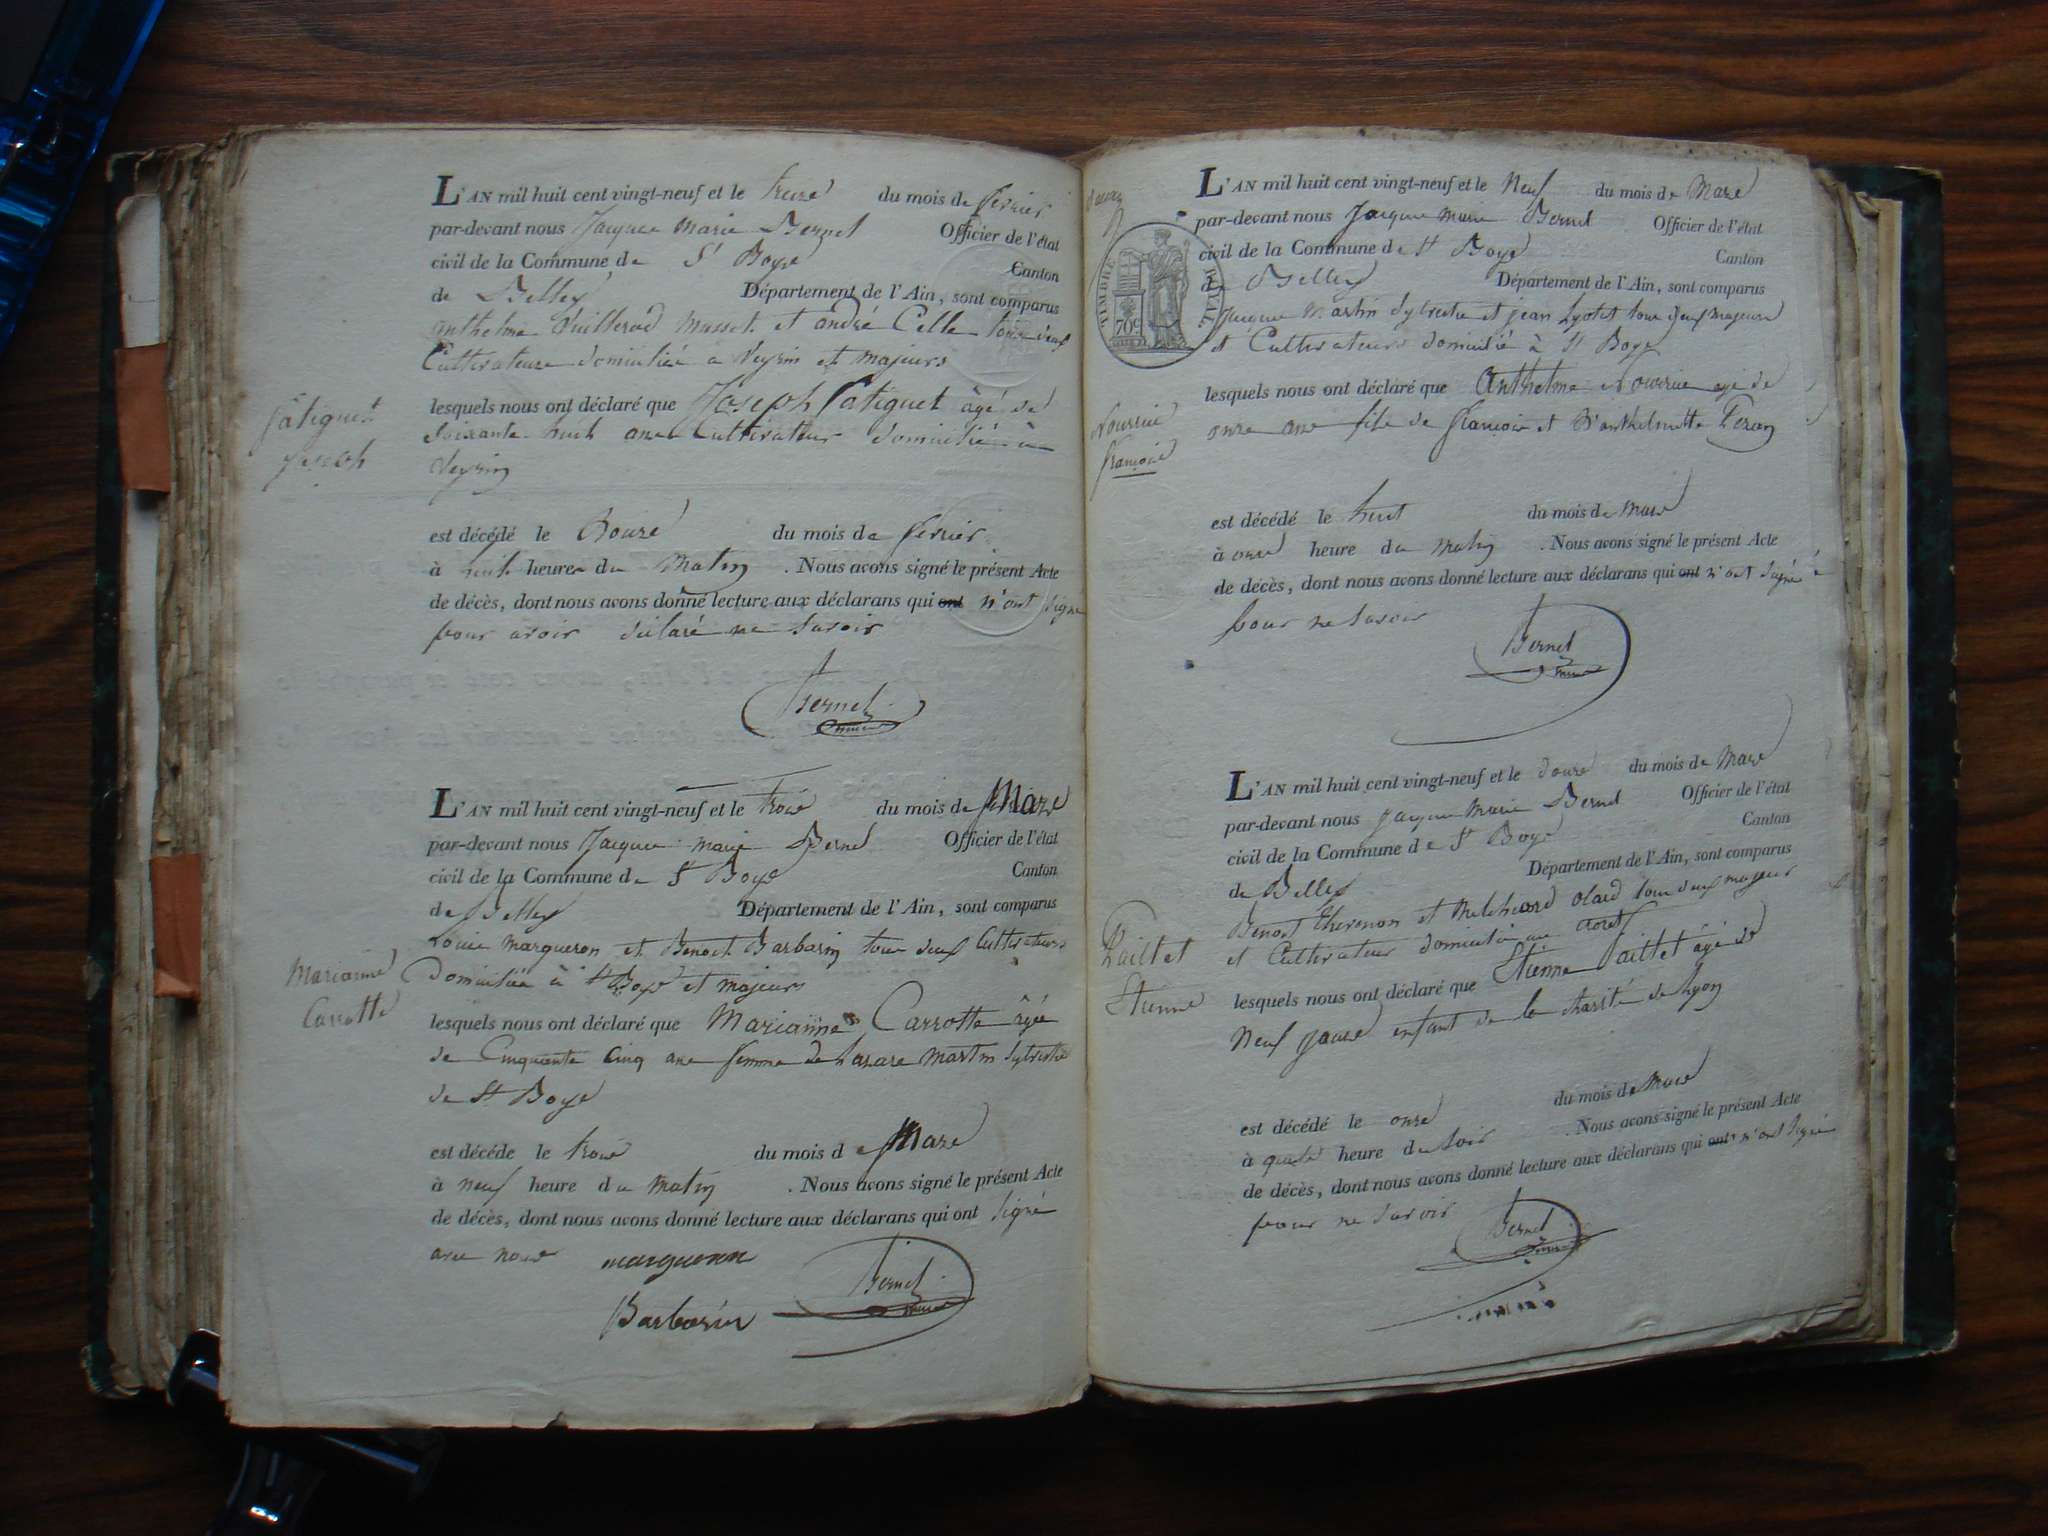 L'AN mil huit cent vingt-neuf et le treize du mois de fevrier
par-devant nous Jacques Marie Bernet Officier de l'état
civil de la Commune de St Boys Canton
de Belley Département de l'Ain, sont comparus
anthelme Vuillerod Masset et andré Celle tous deux
Cultivateurs domiciliés a Veyrin et majeurs
fâtiguet
joseph
lesquels nous ont déclaré que Joseph fatiguet âgé de
Soixante huit ans Cultivateur domicilié à
Veyrin
est décédé le Douze du mois de fevrier
à huit heures du Matin. Nous avons signé le présent Acte
de décès, dont nous avons donné lecture aux déclarans qui ont n'ont signé
pour avoir déclaré ne Savoir
Bernet
L'AN mil huit cent vingt-neuf et le trois du mois de Mars
par-devant nous Jacques marie Bernet Officier de l'état
civil de la Commune de St Boys Canton
de Belley Département de l'Ain, sont comparus
Louis margueron et Benoit Barbarin tous deux Cultivateurs
Domiciliés à St Boys et majeurs
Marianne
Carrotte
lesquels nous ont déclaré que Marianne Carrotte âgée
de Cinquante Cinq ans femme de Lazare Martin Sylvestre
de St Boys
est décéde le trois du mois de Mars
à neuf heure du Matin. Nous avons signé le présent Acte
de décès, dont nous avons donné lecture aux déclarans qui ont Signé
avec nous margueron
Barbarin
Bernet
L'AN mil huit cent vingt-neuf et le Neuf du mois de Mars
par-devant nous Jacques Marie Bernet Officier de l'état
civil de la Commune de St Boys Canton
de Belley Département de l'Ain, sont comparus
TIMBRE ROYAL
70c
Jacques Martin Sylvestre et jean Lyotet tous deux majeurs
et Cultivateurs domicilié à St Boys
Nourrice
françois
lesquels nous ont déclaré que Anthelme agé de
onze ans fils de françois et D'anthelmette
est décédé le huit du mois de Mars
à onze heure du Matin. Nous avons signé le présent Acte
de décès, dont nous avons donné lecture aux déclarans qui ont n'ont Signé
pour ne Savoir
Bernet
L'AN mil huit cent vingt-neuf et le douze du mois de Mars
par-devant nous Jacques Marie Bernet Officier de l'état
civil de la Commune de St Boys Canton
de Belley Département de l'Ain, sont comparus
Benoit Thevenon et Melchiord olard tous deux majeurs
et Cultivateur domicilié au
Paillet
Etienne
lesquels nous ont déclaré que Etienne Paillet âgé de
Neuf jours enfant de la charité de Lyon
est décédé le onze du mois de Mars
à quatre heure du Soir. Nous avons signé le présent Acte
de décès, dont nous avons donné lecture aux déclarans qui ont n'ont Signé
pour ne Savoir
Bernet